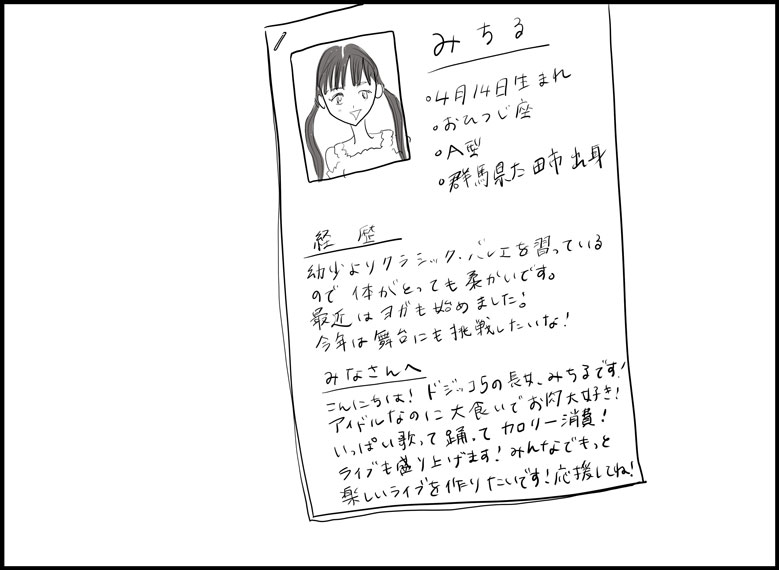 みちる
・4月14日生まれ
・おひつじ座
・A型
・群馬県太田市出身
経歴
幼少よりクラシック・バレエを習っている
ので体がとっても柔かいです。
最近はヨガも始めました!
今年は舞台にも挑戦したいな!
みなさんへ
こんにちは!ドジッコ5の長女、みちるです!
アイドルなのに大食いでお肉大好き!
いっぱい歌って踊ってカロリー消費!
ライブも盛り上げます!みんなでもっと
楽しいライブを作りたいです!応援してね!